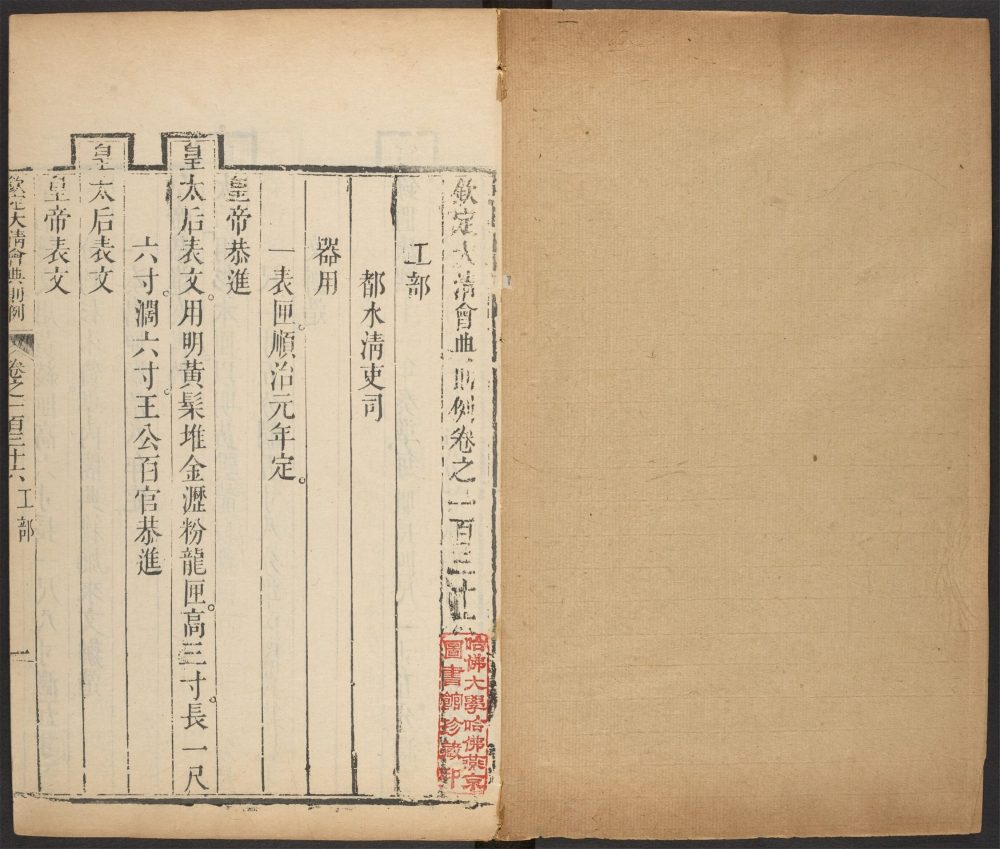 欽定大清會典則例卷之一百三十六
工部
都水清吏司
器用
一表匣。順治元年定。
皇帝恭進
皇太后表文。用明黃髹堆金瀝粉龍匣。高三寸。長一尺
六寸。濶六寸。王公百官恭進
皇太后表文
皇帝表文
欽定大清會典則例 卷之一百三十六 工部 一
哈佛大學哈佛燕京
圖書館珍藏印